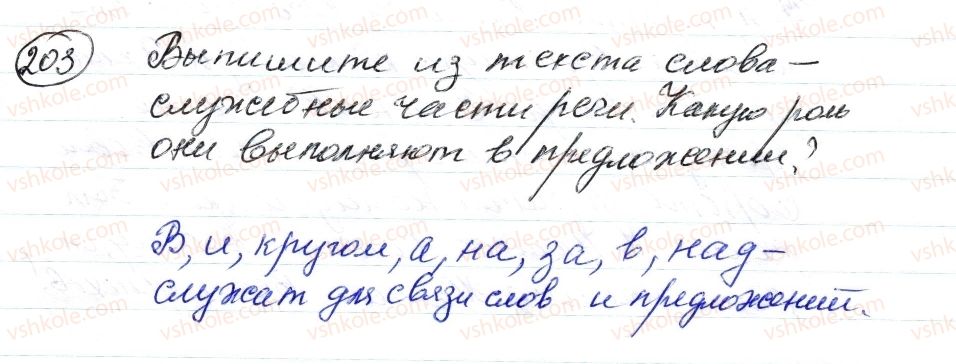 203 Выпишите из текста слова —
служебные части речи. Какую роль
они выполняют в предложении?
В, и, кругом, а, на, за, в, над —
служат для связи слов и предложений.
vshkole.com